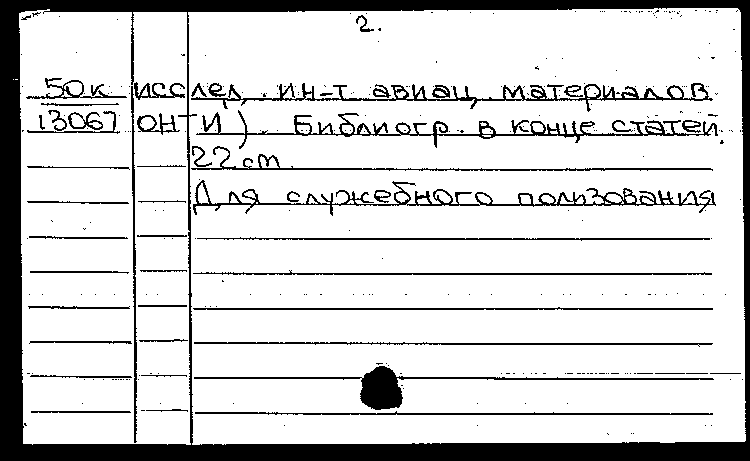 2.
50к исслед. ин-т авиац. материалов
13067 ОНТИ). Библиогр. в конце статей.
22 cm.
Для служебного пользования